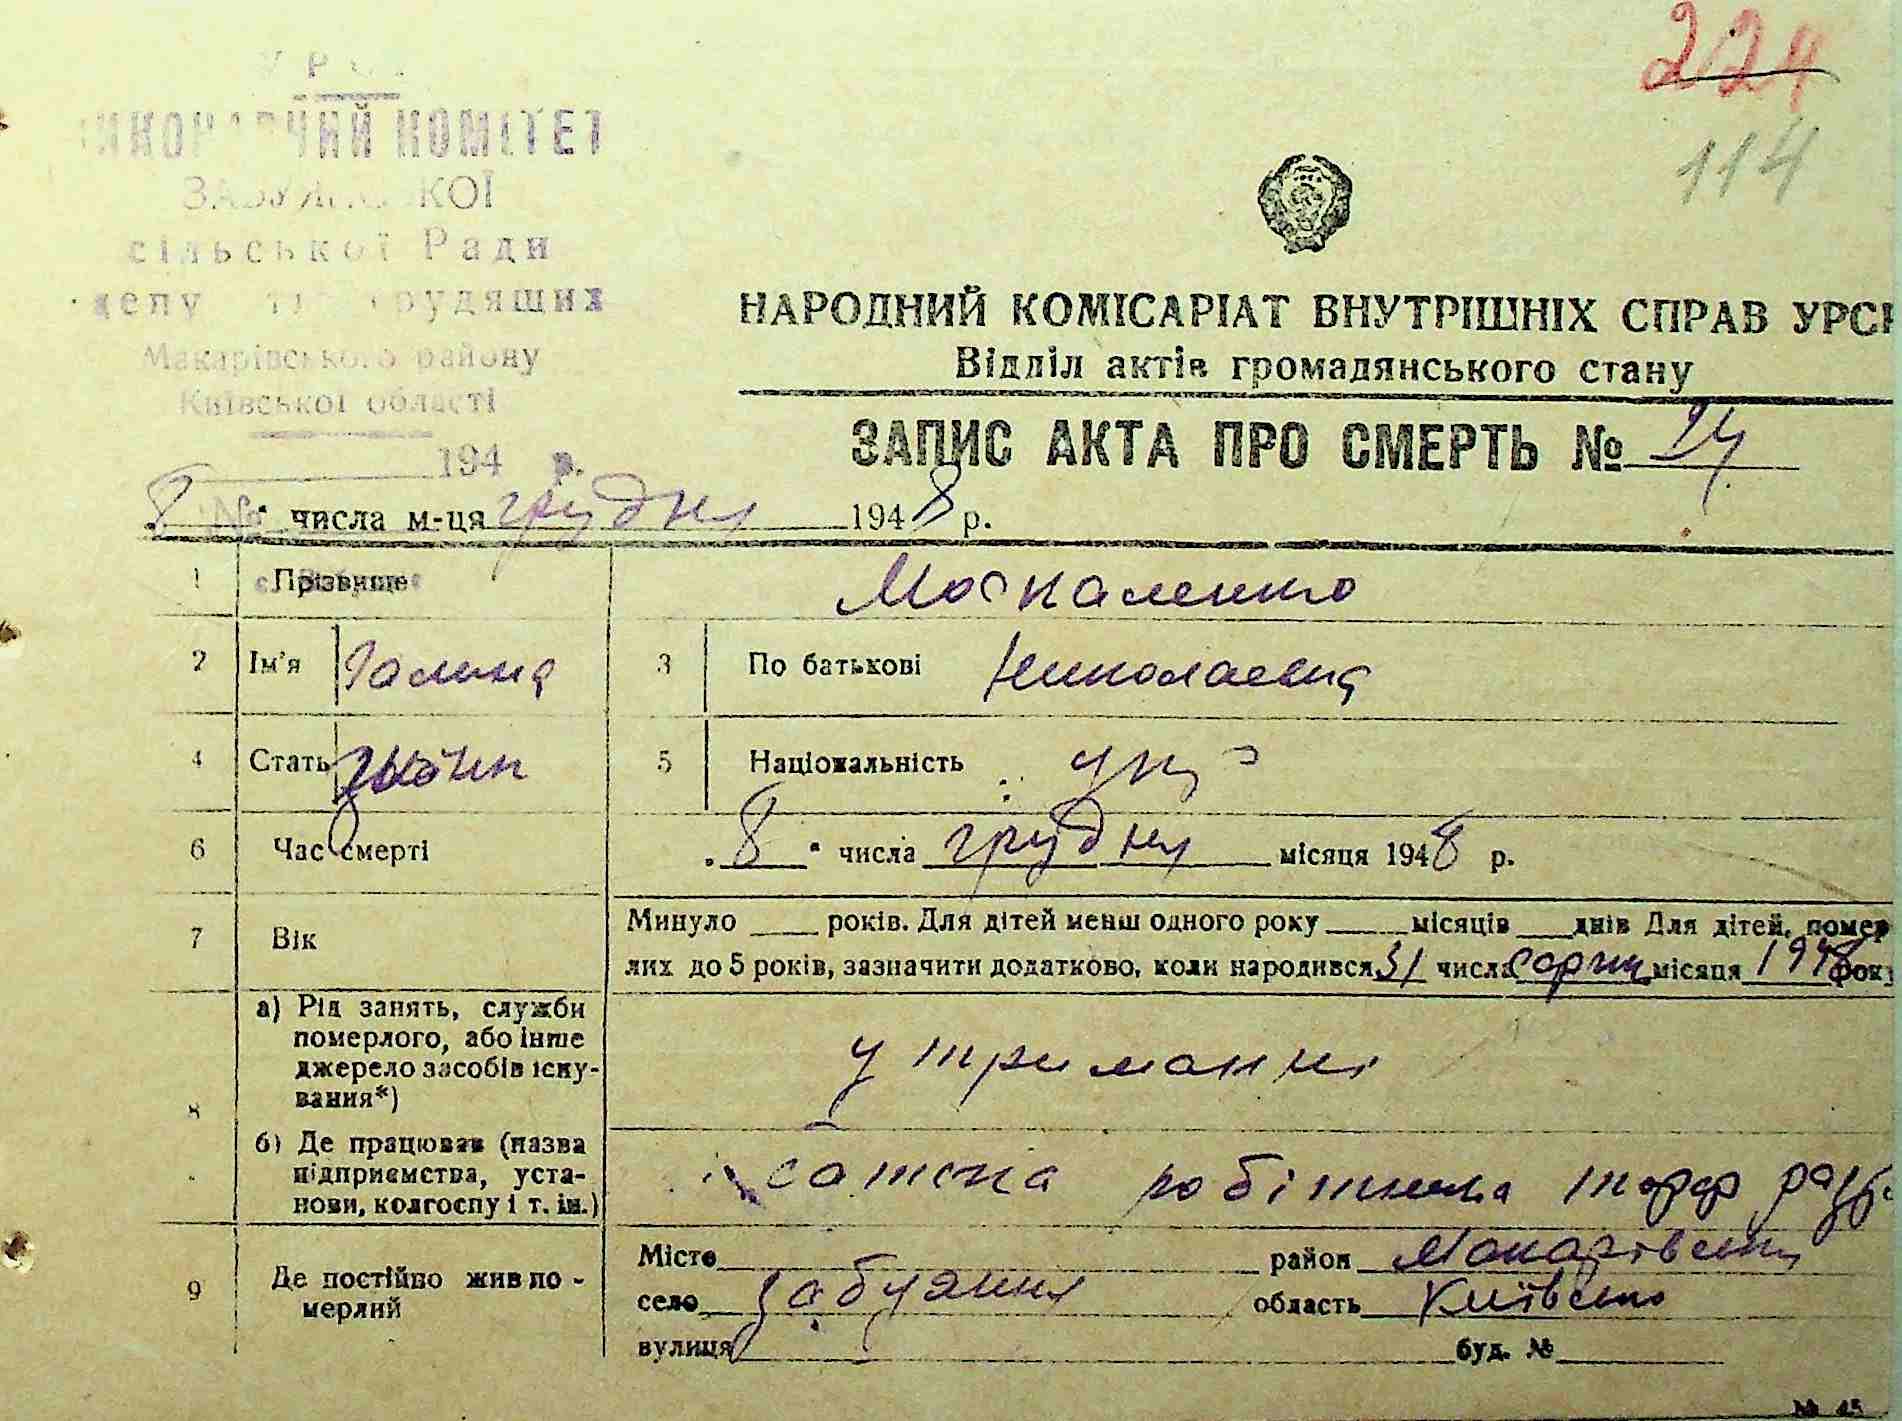 224
114
КОМІТЕТ
сільської Ради
трудящих
Макарівського району
Київської області
194 р.
НАРОДНИЙ КОМІСАРІАТ ВНУТРІШНІХ СПРАВ УРСР
Відділ актів громадянського стану
ЗАПИС АКТА ПРО СМЕРТЬ №
8 числа м-ця грудня 1948 р.
1 Прізвище Москаленко
2 Ім'я Галина 3 По батькові Николаевна
4 Стать 5 Національність укр
6 Час смерті „8“ числа грудня місяця 1948 р.
7 Вік Минуло ___ років. Для дітей менш одного року ___ місяців ___ днів Для дітей, помер
лих до 5 років, зазначити додатково, коли народився 31 числа серпня місяця 1948 року
8 а) Рід занять, служби
померлого, або інше
джерело засобів існу-
вання*)
утриманні
б) Де працював (назва
підприємства, уста-
нови, колгоспу і т. ін.)
робітника торф
9 Де постійно жив по-
мерлий
Місто район Макарівський
село Забуяння область Київська
вулиця буд. №
№ 45